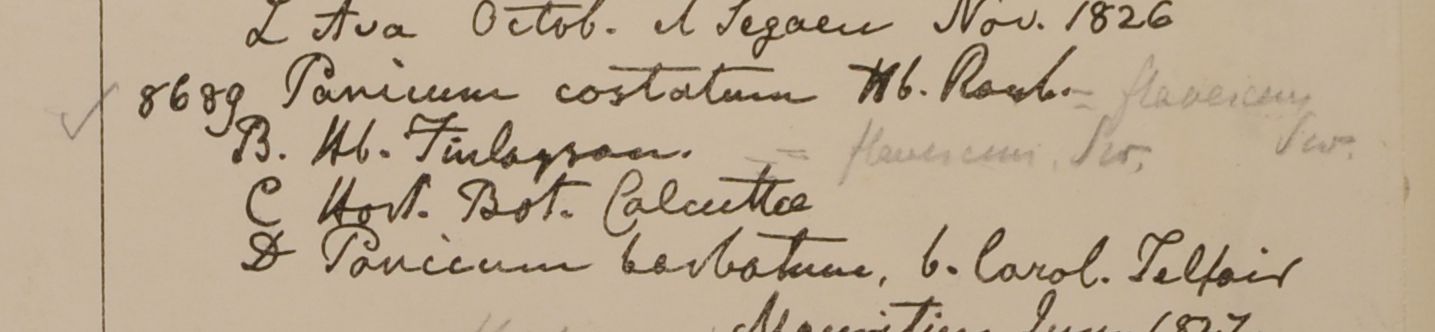 L Ava Octob. et Segaen Nov. 1826
8689 Panicum costatum Hb. Roxb. = flavescens Sw.
B. Hb. Finlayson. = flavescens. Sw.
C Hort. Bot. Calcutta
D Panicum barbatum, b. Carol. Telfair
Mauritius Jun. 1827